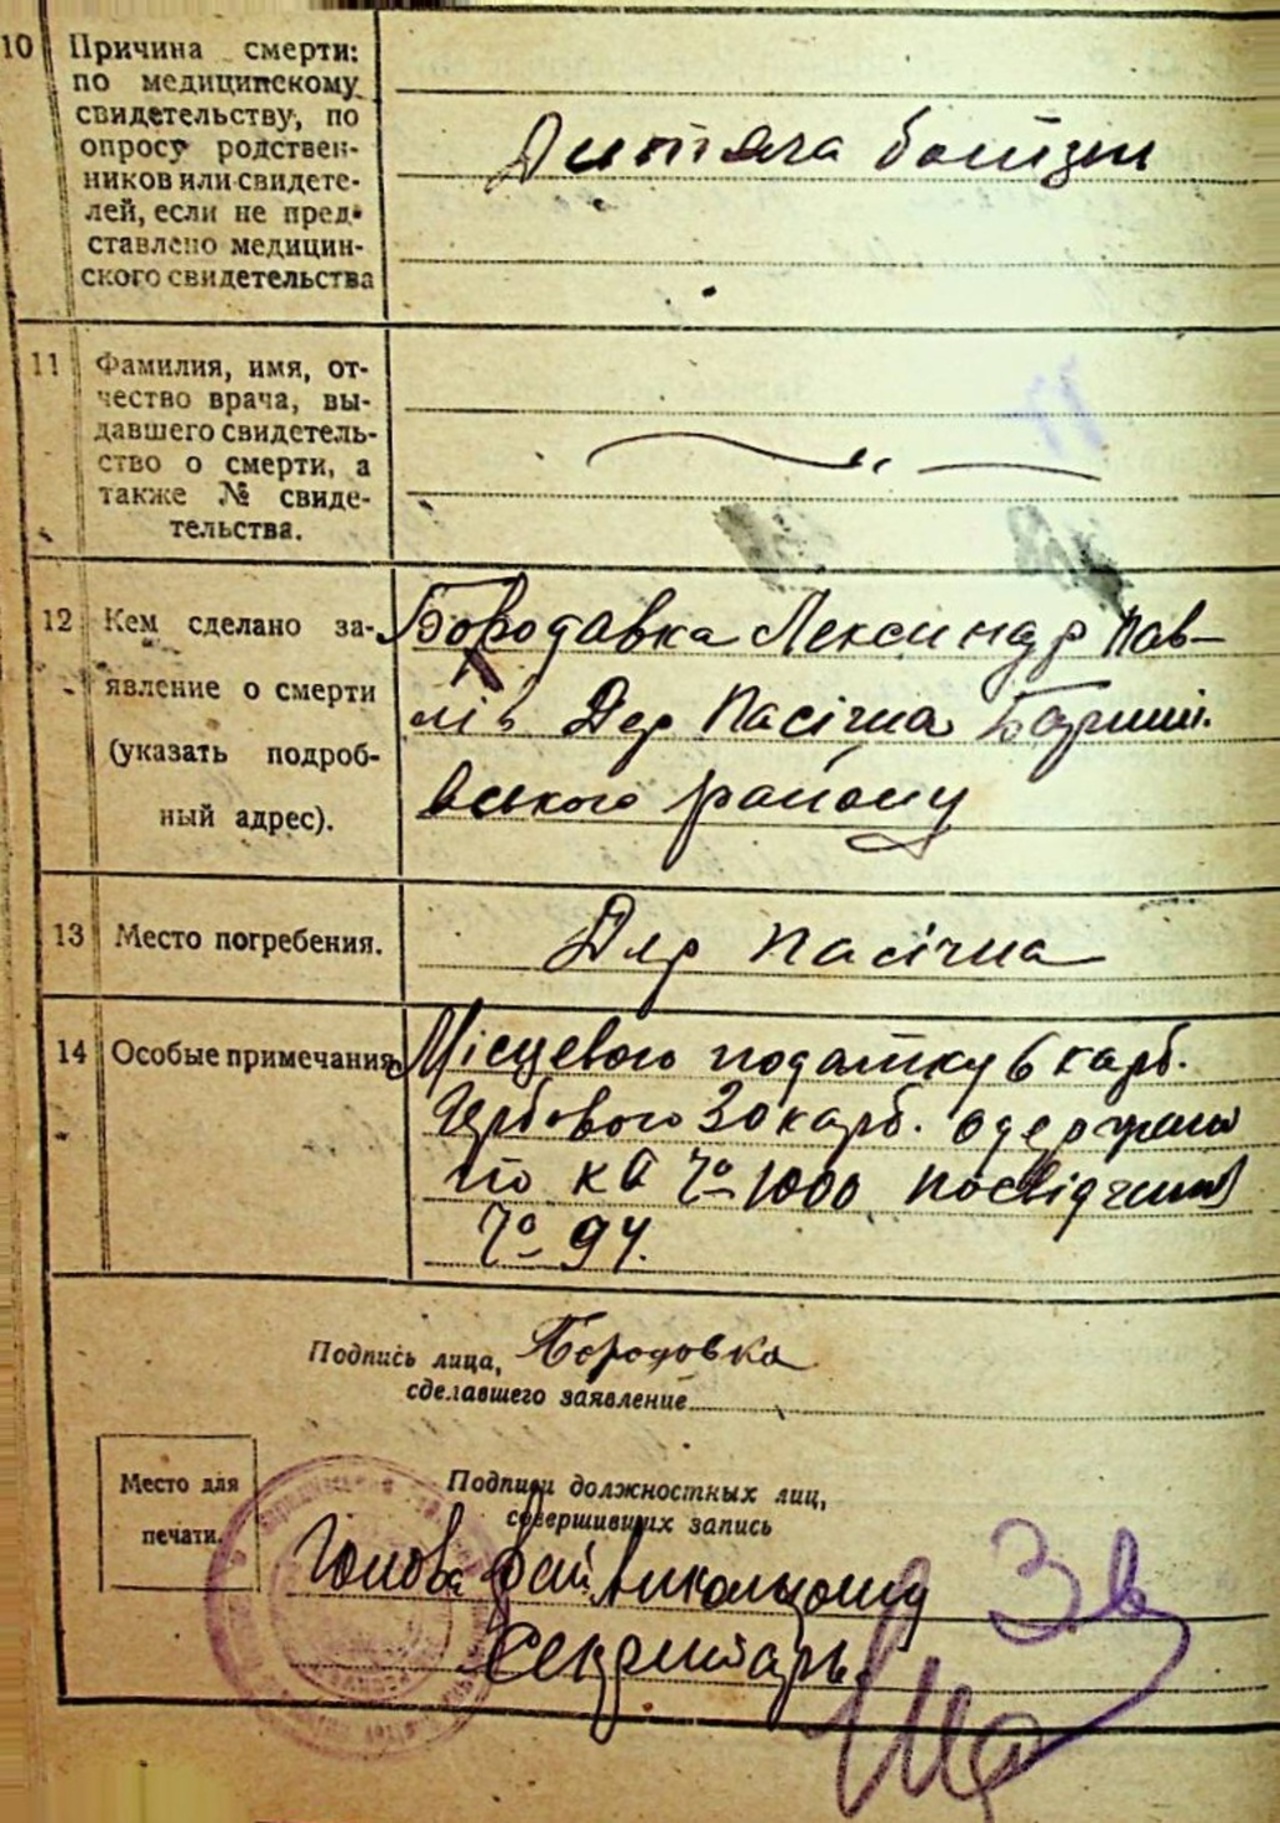 10 Причина смерти:
по медицинскому
свидетельству, по
опросу родствен-
ников или свидете-
лей, если не пред-
ставлено медицин-
ского свидетельства
Дитяча
11 Фамилия, имя, от-
чество врача, вы-
давшего свидетель-
ство о смерти, а
также № свиде-
тельства.
12 Кем сделано за-
явление о смерти
(указать подроб-
ный адрес).
Бородавка Лександр Пав-
лів Дер Пасічна Бариші
вського району
13 Место погребения.
Дер Пасічна
14 Особые примечания
Місцевого податку 6 карб.
Гербового 30 карб. одержано
по кв № 1000 посвідчення
№ 94.
Подпись лица, Бородовка
сделавшего заявление
Место для
печати.
Подписи должностных лиц,
совершивших запись
Голова
Секретарь